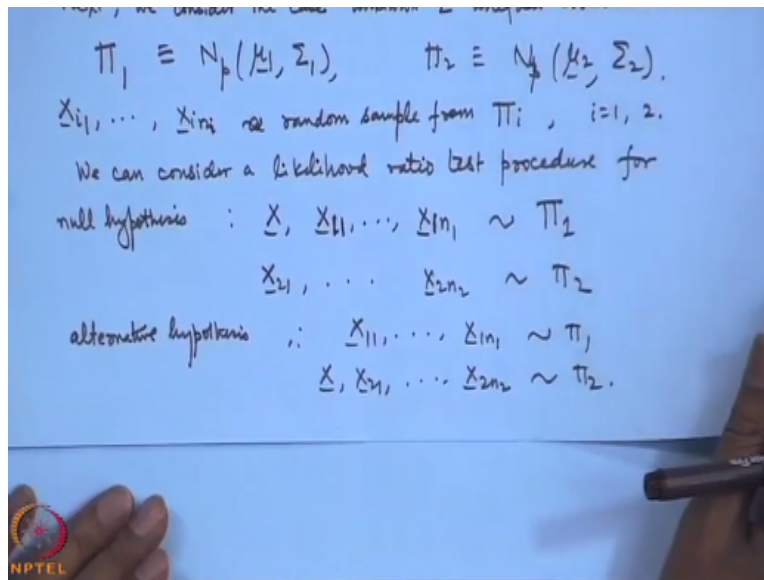 we consider the case
Π₁ ≡ Nₚ(μ₁, Σ₁), Π₂ ≡ Nₚ(μ₂, Σ₂).
X̲ᵢ₁, ⋯, X̲ᵢₙᵢ a random sample from Πᵢ, i=1, 2.
We can consider a likelihood ratio test procedure for
null hypothesis : X̲, X̲₁₁, ⋯, X̲₁ₙ₁ ~ Π₁
X̲₂₁, ⋯ X̲₂ₙ₂ ~ Π₂
alternative hypothesis : X̲₁₁, ⋯, X̲₁ₙ₁ ~ Π₁
X̲, X̲₂₁, ⋯ X̲₂ₙ₂ ~ Π₂.
NPTEL